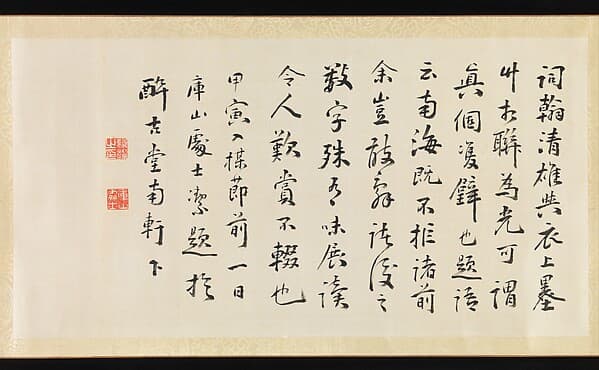 詞翰清雄與衣上墨
竹相聯為光可謂
真個雙璧也題語
云南海既不拒諸前
余豈敢辭諸後之
數字殊有味展讀
令人歎賞不輟也
甲寅入楳節前一日
庫山處士潔題於
醉古堂南軒下